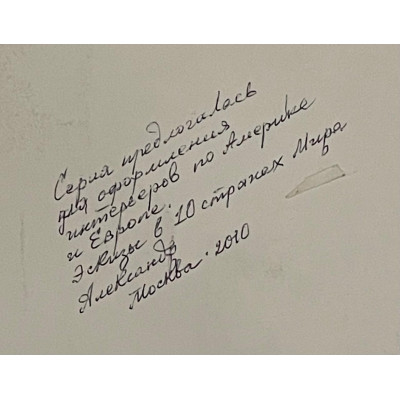 Серия предлогилась
для оформления
интерьеров по Америке
и Европе.
Эскизы в 10 странах Мира
Александр
Москва. 2010